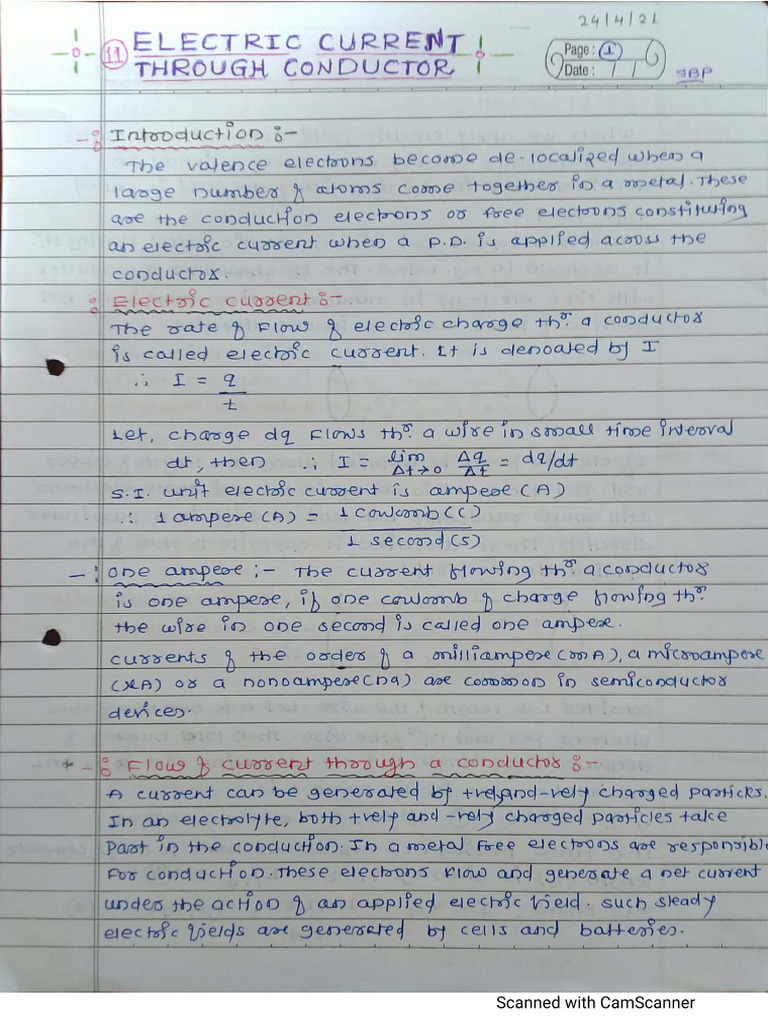 24/4/21
11 ELECTRIC CURRENT
THROUGH CONDUCTOR
Page: 1
Date: / /
SBP
-: Introduction :-
The valence electrons become de-localized when a
large number of atoms come together in a metal. These
are the conduction electrons or free electrons constituting
an electric current when a P.D. is applied across the
conductor.
: Electric current :-
The rate of flow of electric charge thr. a conductor
is called electric current. It is denoated by I
∴ I = q
t
Let, charge dq flows thr. a wire in small time interval
dt, then ∴ I = lim Δt→0 Δq/Δt = dq/dt
S.I. unit electric current is ampere (A)
∴ 1 ampere (A) = 1 cowomb (C)
1 second (s)
-: one ampere :- The current flowing thr. a conductor
is one ampere, if one cowomb of charge flowing thr.
the wire in one second is called one ampere.
currents of the order of a milliampere (mA), a microampere
(μA) or a nonoampere (na) are common in semiconductor
devices.
-: Flow of current through a conductor :-
A current can be generated by +vely and -vely charged particles.
In an electrolyte, both +vely and -vely charged particles take
part in the conduction. In a metal free electrons are responsible
for conduction. These electrons flow and generate a net current
under the action of an applied electric field. such steady
electric fields are generated by cells and batteries.
Scanned with CamScanner